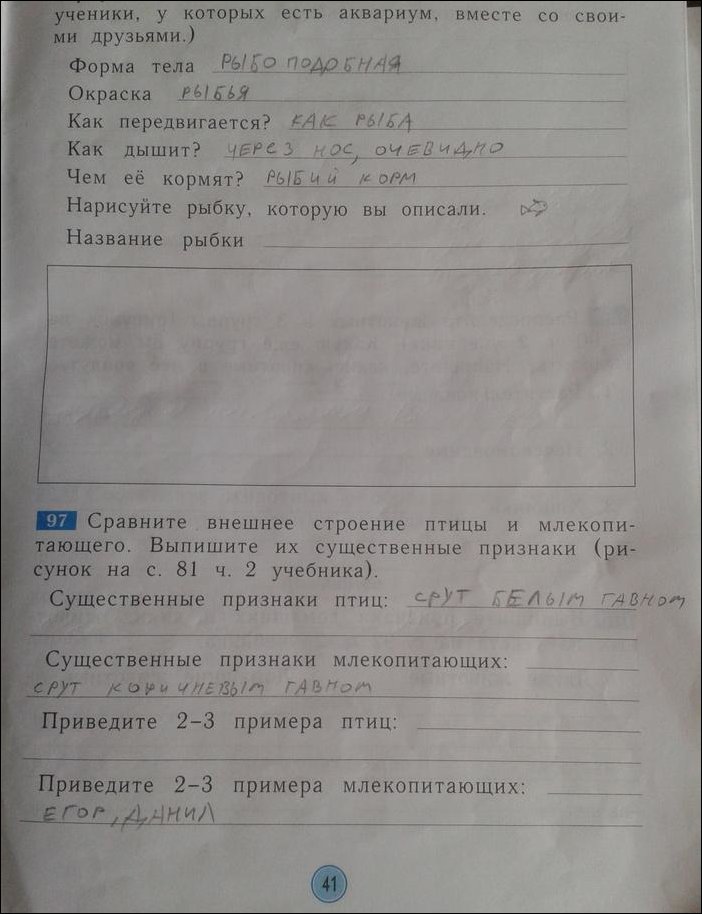 ученики, у которых есть аквариум, вместе со свои-
ми друзьями.)
Форма тела РЫБОПОДОБНАЯ
Окраска РЫБЬЯ
Как передвигается? КАК РЫБА
Как дышит? ЧЕРЕЗ НОС, ОЧЕВИДНО
Чем её кормят? РЫБИЙ КОРМ
Нарисуйте рыбку, которую вы описали.
Название рыбки
97 Сравните внешнее строение птицы и млекопи-
тающего. Выпишите их существенные признаки (ри-
сунок на с. 81 ч. 2 учебника).
Существенные признаки птиц: СРУТ БЕЛЫМ ГАВНОМ
Существенные признаки млекопитающих:
СРУТ КОРИЧНЕВЫМ ГАВНОМ
Приведите 2–3 примера птиц:
Приведите 2–3 примера млекопитающих:
ЕГОР, ДАНИЛ
41